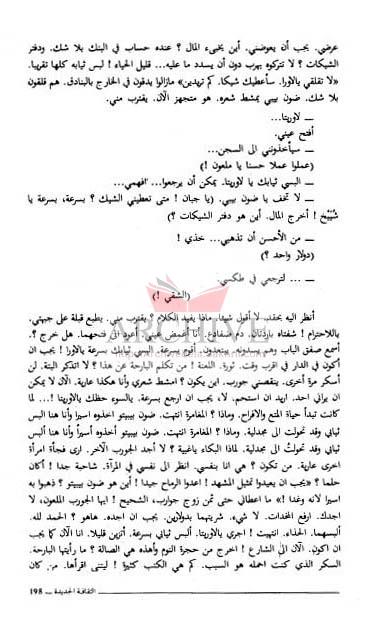 عرضي. يجب أن يعوضني. أين يخبىء المال ؟ عنده حساب في البنك بلا شك. ودفتر
الشيكات ؟ لا تتركوه يهرب دون أن يسدد ما عليه... قليل الحياء ! لبس ثيابه كلها تقريبا.
«لا تقلقي يالاورا. سأعطيك شيكا. كم تريدين» مازالوا يدقون في الخارج بالبنادق. هم قلقون
بلا شك. ضون بيبي يمشط شعره. هو متجهز الآن. يقترب مني.
ــ لاوريتا...
أفتح عيني.
ــ سيأخذونني الى السجن...
(عملوا عملا حسنا يا ملعون !)
ــ البسي ثيابك يا لاوريتا. يمكن أن يرجعوا... افهمي...
ــ لا تخف يا ضون بيبي. (يا جبان ! متى تعطيني الشيك ؟ بسرعة، بسرعة يا
شُيَيْخ ! أخرج المال. أين هو دفتر الشيكات ؟)
ــ من الأحسن أن تذهبي... خذي !
(دولار واحد ؟)
ــ ... لترجعي في طكسي.
(الشقي !)
انظر اليه بحقد. لا أقول شيئا. ماذا يفيد الكلام ؟ يقترب مني. يطبع قبلة على جبهتي.
ياللاحترام ! شفتاه باردتان. دم ضفادع. أنا أغمض عيني. أعود الى فتحهما. هل خرج ؟.
أسمع صفق الباب وهم يسدونه. يبتعدون. أقوم بسرعة. البسي ثيابك بسرعة يالاورا ! يجب ان
أكون في الدار في اقرب وقت. ثورة. اللعنة ! من تكلم البارحة عن هذا ؟ لا أتذكر البتة. لن
أسكر مرة أخرى. ينقصني جورب. اين يكون ؟ امشط شعري وأنا هكذا عارية. الآن لا يمكن
ان يراني احد. اريد ان استحم. لا، يجب ان ارجع بسرعة. يالسوء حظك يالاوريتا !... لما
كانت تبدأ حياة المتع والافراح. وماذا ؟ المغامرة انتهت. ضون بيبيتو اخذوه اسيرا وأنا هنا البس
ثيابي وقد تحولت الى مجدلية. وماذا ؟ المغامرة انتهت. ضون بيبيتو أخذوه أسيراً وأنا هنا ألبس
ثيابي وقد تحولتُ الى مجدلية. لماذا البكاء ياغبية ؟ لا أجد الجورب الآخر. ارى فجأة امرأة
اخرى عارية. من تكون ؟ هي انا بنفسي. انظر الى نفسي في المرآة. شاحبة جدا ! أكان
حلما ؟ «يجب ان يعيدوا تمثيل المشهد ! اعدوا الرماح جيدا ! أين هو ضون بيبيتو ؟ ذهبوا به
اسيرا لانه وغد !» ما اعطاني حتى ثمن زوج جوارب، الشحيح ! ايها الجورب الملعون، لا
اجدك. ارفع المخدات. لا شيء. شريتهما بدولارين. يجب ان اجده. هاهو ؟ الحمد لله.
ألبسهما. الحذاء. انتهيت ! اجري يالاوريتا. ألبس ثيابي بسرعة. أتزين قليلا. انا الآن كما يجب
ان اكون. الآن الى الشارع ! اخرج من حجرة النوم وأهذه هي الصالة ؟ ما رأيتها البارحة.
السكر الذي كنت احمله هو السبب. كم هي الكتب كثيرة ! ليتني اقرأها. من كان
الثقافة الجديدة ــ 198
ARCHIVE